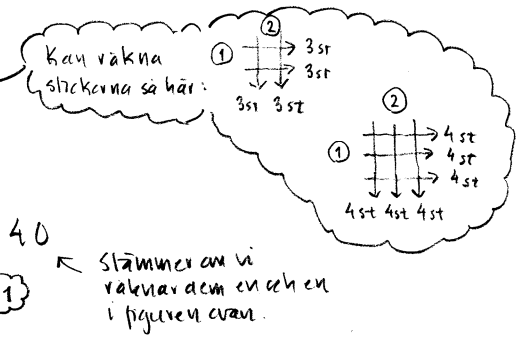 Kan räkna
stickorna så här:
②
① 3 st
3 st
3 st 3 st
②
① 4 st
4 st
4 st
4 st 4 st 4 st
40
stämmer om vi
räknar dem en och en
i figuren ovan.
1